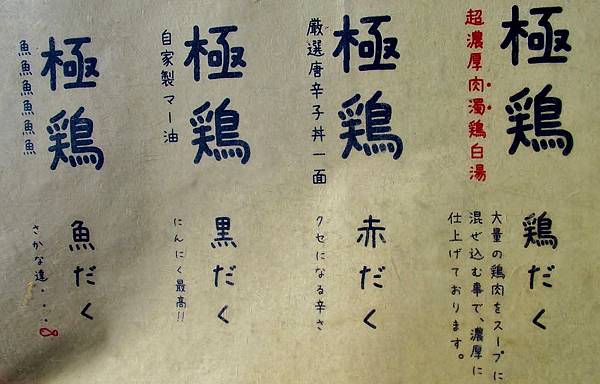 極鶏
超濃厚肉濁鶏白湯
鶏だく
大量の鶏肉をスープに
混ぜ込む事で、濃厚に
仕上げております。
極鶏
厳選唐辛子丼一面
赤だく
クセになる辛さ
極鶏
自家製マー油
黒だく
にんにく最高!!
極鶏
魚魚魚魚魚魚魚
魚だく
さかな達・・・